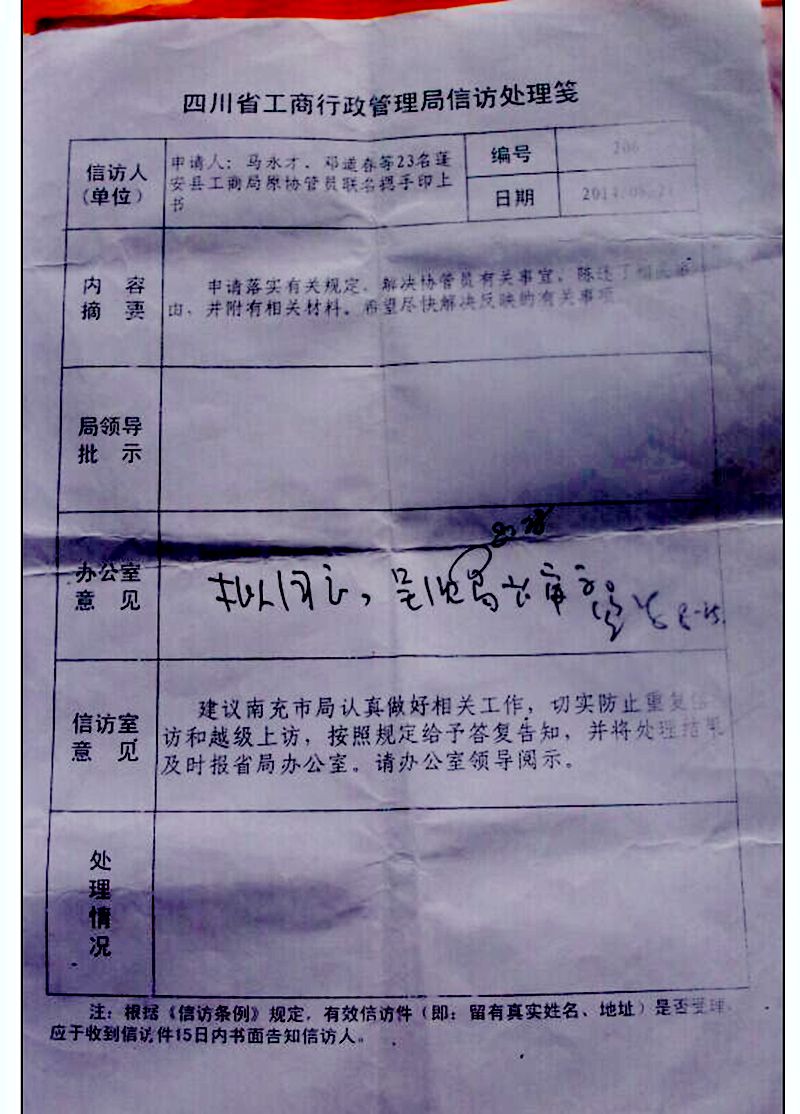 四川省工商行政管理局信访处理笺
信访人
(单位)
申请人：马永才、邓道春等23名蓬
安县工商局原协管员联名摁手印上
书
编号
206
日期
2014.08.2
内 容
摘 要
申请落实有关规定，解决协管员有关事宜，陈述了相关事
由，并附有相关材料。希望尽快解决反映的有关事项
局领导
批 示
办公室
意 见
拟同意，呈 局长审示
8-25
信访室
意 见
建议南充市局认真做好相关工作，切实防止重复信
访和越级上访，按照规定给予答复告知，并将处理结果
及时报省局办公室。请办公室领导阅示。
处
理
情
况
注：根据《信访条例》规定，有效信访件（即：留有真实姓名、地址）是否受理，
应于收到信访件15日内书面告知信访人。